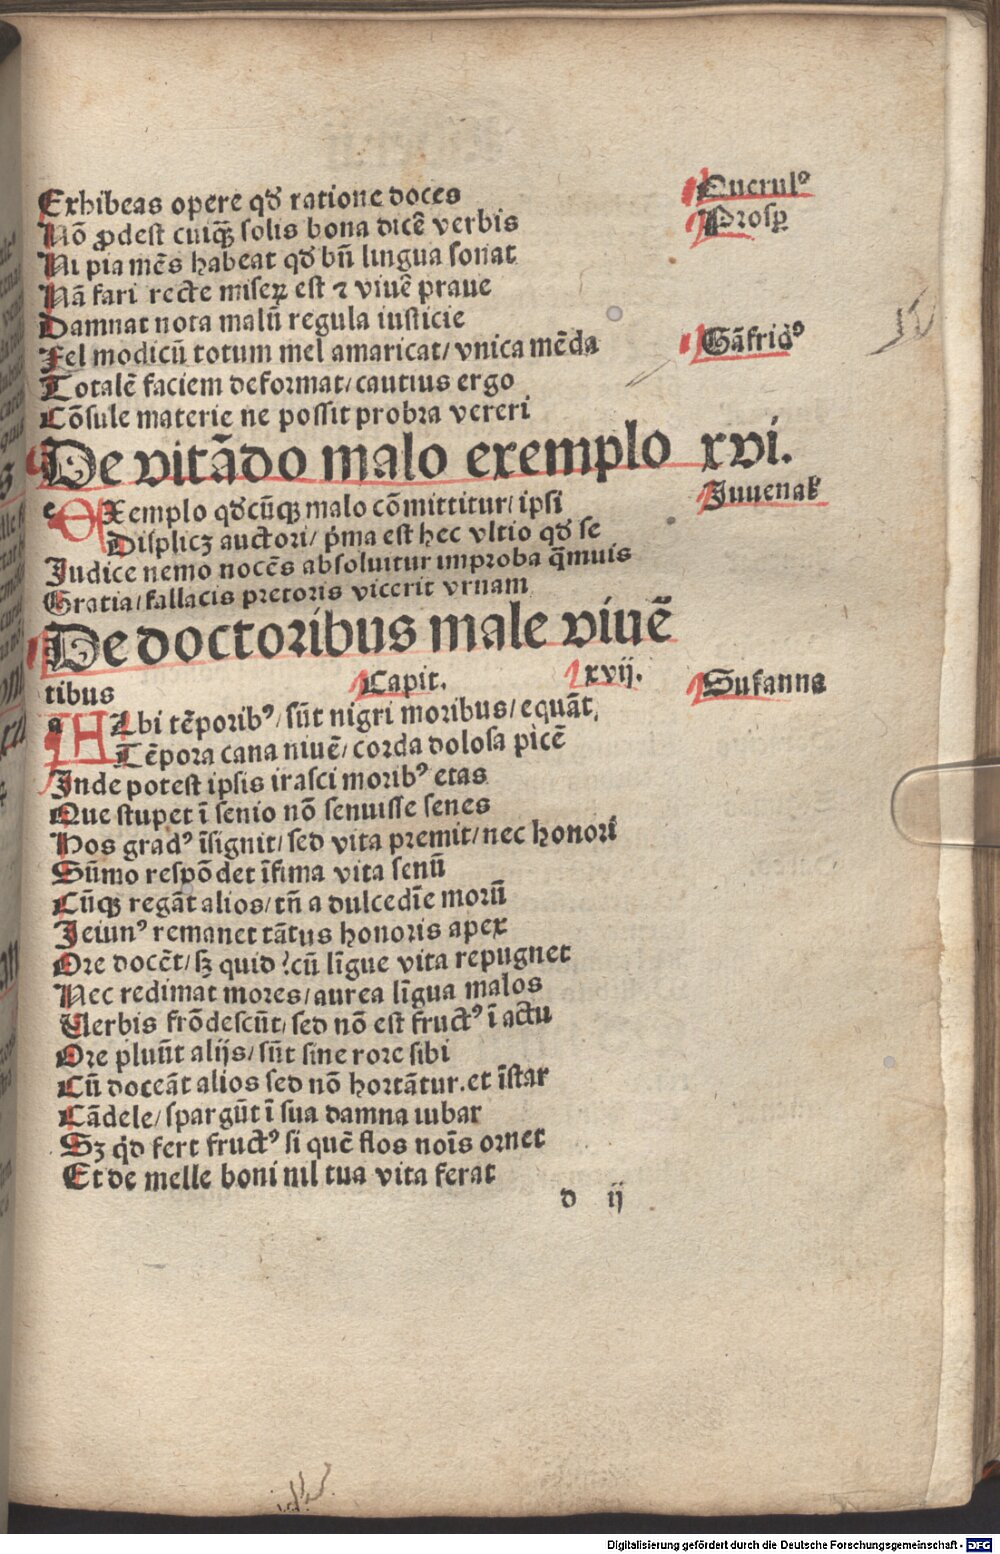 Exhibeas opere qđ ratione doces
Querulꝰ
Nō ꝓdest cuiqꝫ̄ solis bona dicē verbis
Prosꝑ
Ni pia mēs habeat qđ bn̄ lingua sonat
Nā fari recte miseꝝ est ⁊ viuē praue
Damnat nota malū regula iusticie
Fel modicū totum mel amaricat/ vnica mēda
Gāfridꝰ
Totalē faciem deformat/ cautius ergo
Cōsule materie ne possit probra vereri
De vitādo malo exemplo xvi.
eExemplo qđcūqꝫ malo cōmittitur/ ipsi
Iuuenal
Displicꝫ auctori/ pͥma est hec vltio qđ se
Iudice nemo nocēs absoluitur improba q̄muis
Gratia/ fallacis pretoris vicerit vrnam
De doctoribus male viuē
tibus Capit. xvij.
Susanna
a Albi tēporibꝰ/ sūt nigri moribus/ equāt,
Tēpora cana niuē/ corda dolosa picē
Inde potest ipsis irasci moribꝰ etas
Que stupet ī senio nō senuisse senes
Hos gradꝰ īsignit/ sed vita premit/ nec honori
Sūmo respōdet īfima vita senū
Cūqꝫ regāt alios/ tn̄ a dulcedīe morū
Ieiunꝰ remanet tātus honoris apex
Ore docēt/ sꝫ quid ? cū līgue vita repugnet
Nec redimat mores/ aurea līgua malos
Uerbis frōdescūt/ sed nō est fructꝰ ī actu
Ore pluūt alijs/ sūt sine rore sibi
Cū doceāt alios sed nō hortātur. et īstar
Cādele/ spargūt ī sua damna iubar
Sꝫ qͥd fert fructꝰ si quē flos noīs ornet
Et de melle boni nil tua vita ferat
d ij
Digitalisierung gefördert durch die Deutsche Forschungsgemeinschaft - DFG